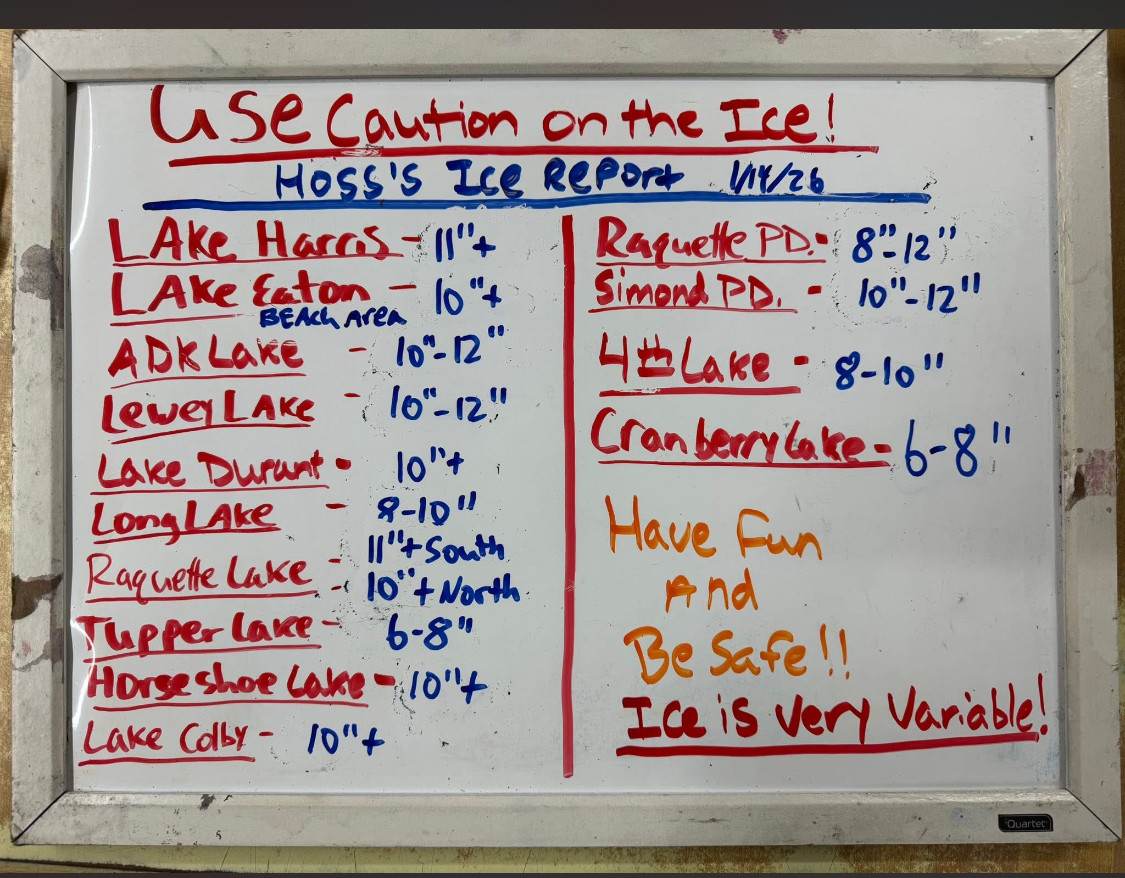 Use Caution on the Ice!
Hoss's Ice Report 1/14/26
LAke Harris - 11"+
LAke Eaton - 10"+
BEAch AreA
ADK Lake - 10"-12"
Lewey LAke - 10"-12"
Lake Durant - 10"+
Long LAke - 8-10"
Raquette Lake - 11"+ South
- 10"+ North
Tupper Lake - 6-8"
Horseshoe Lake - 10"+
Lake Colby - 10"+
Raquette PD. - 8"-12"
Simond PD. - 10"-12"
4th Lake - 8-10"
Cranberry Lake - 6-8"
Have Fun
And
Be Safe!!
Ice is Very Variable!
Quartet